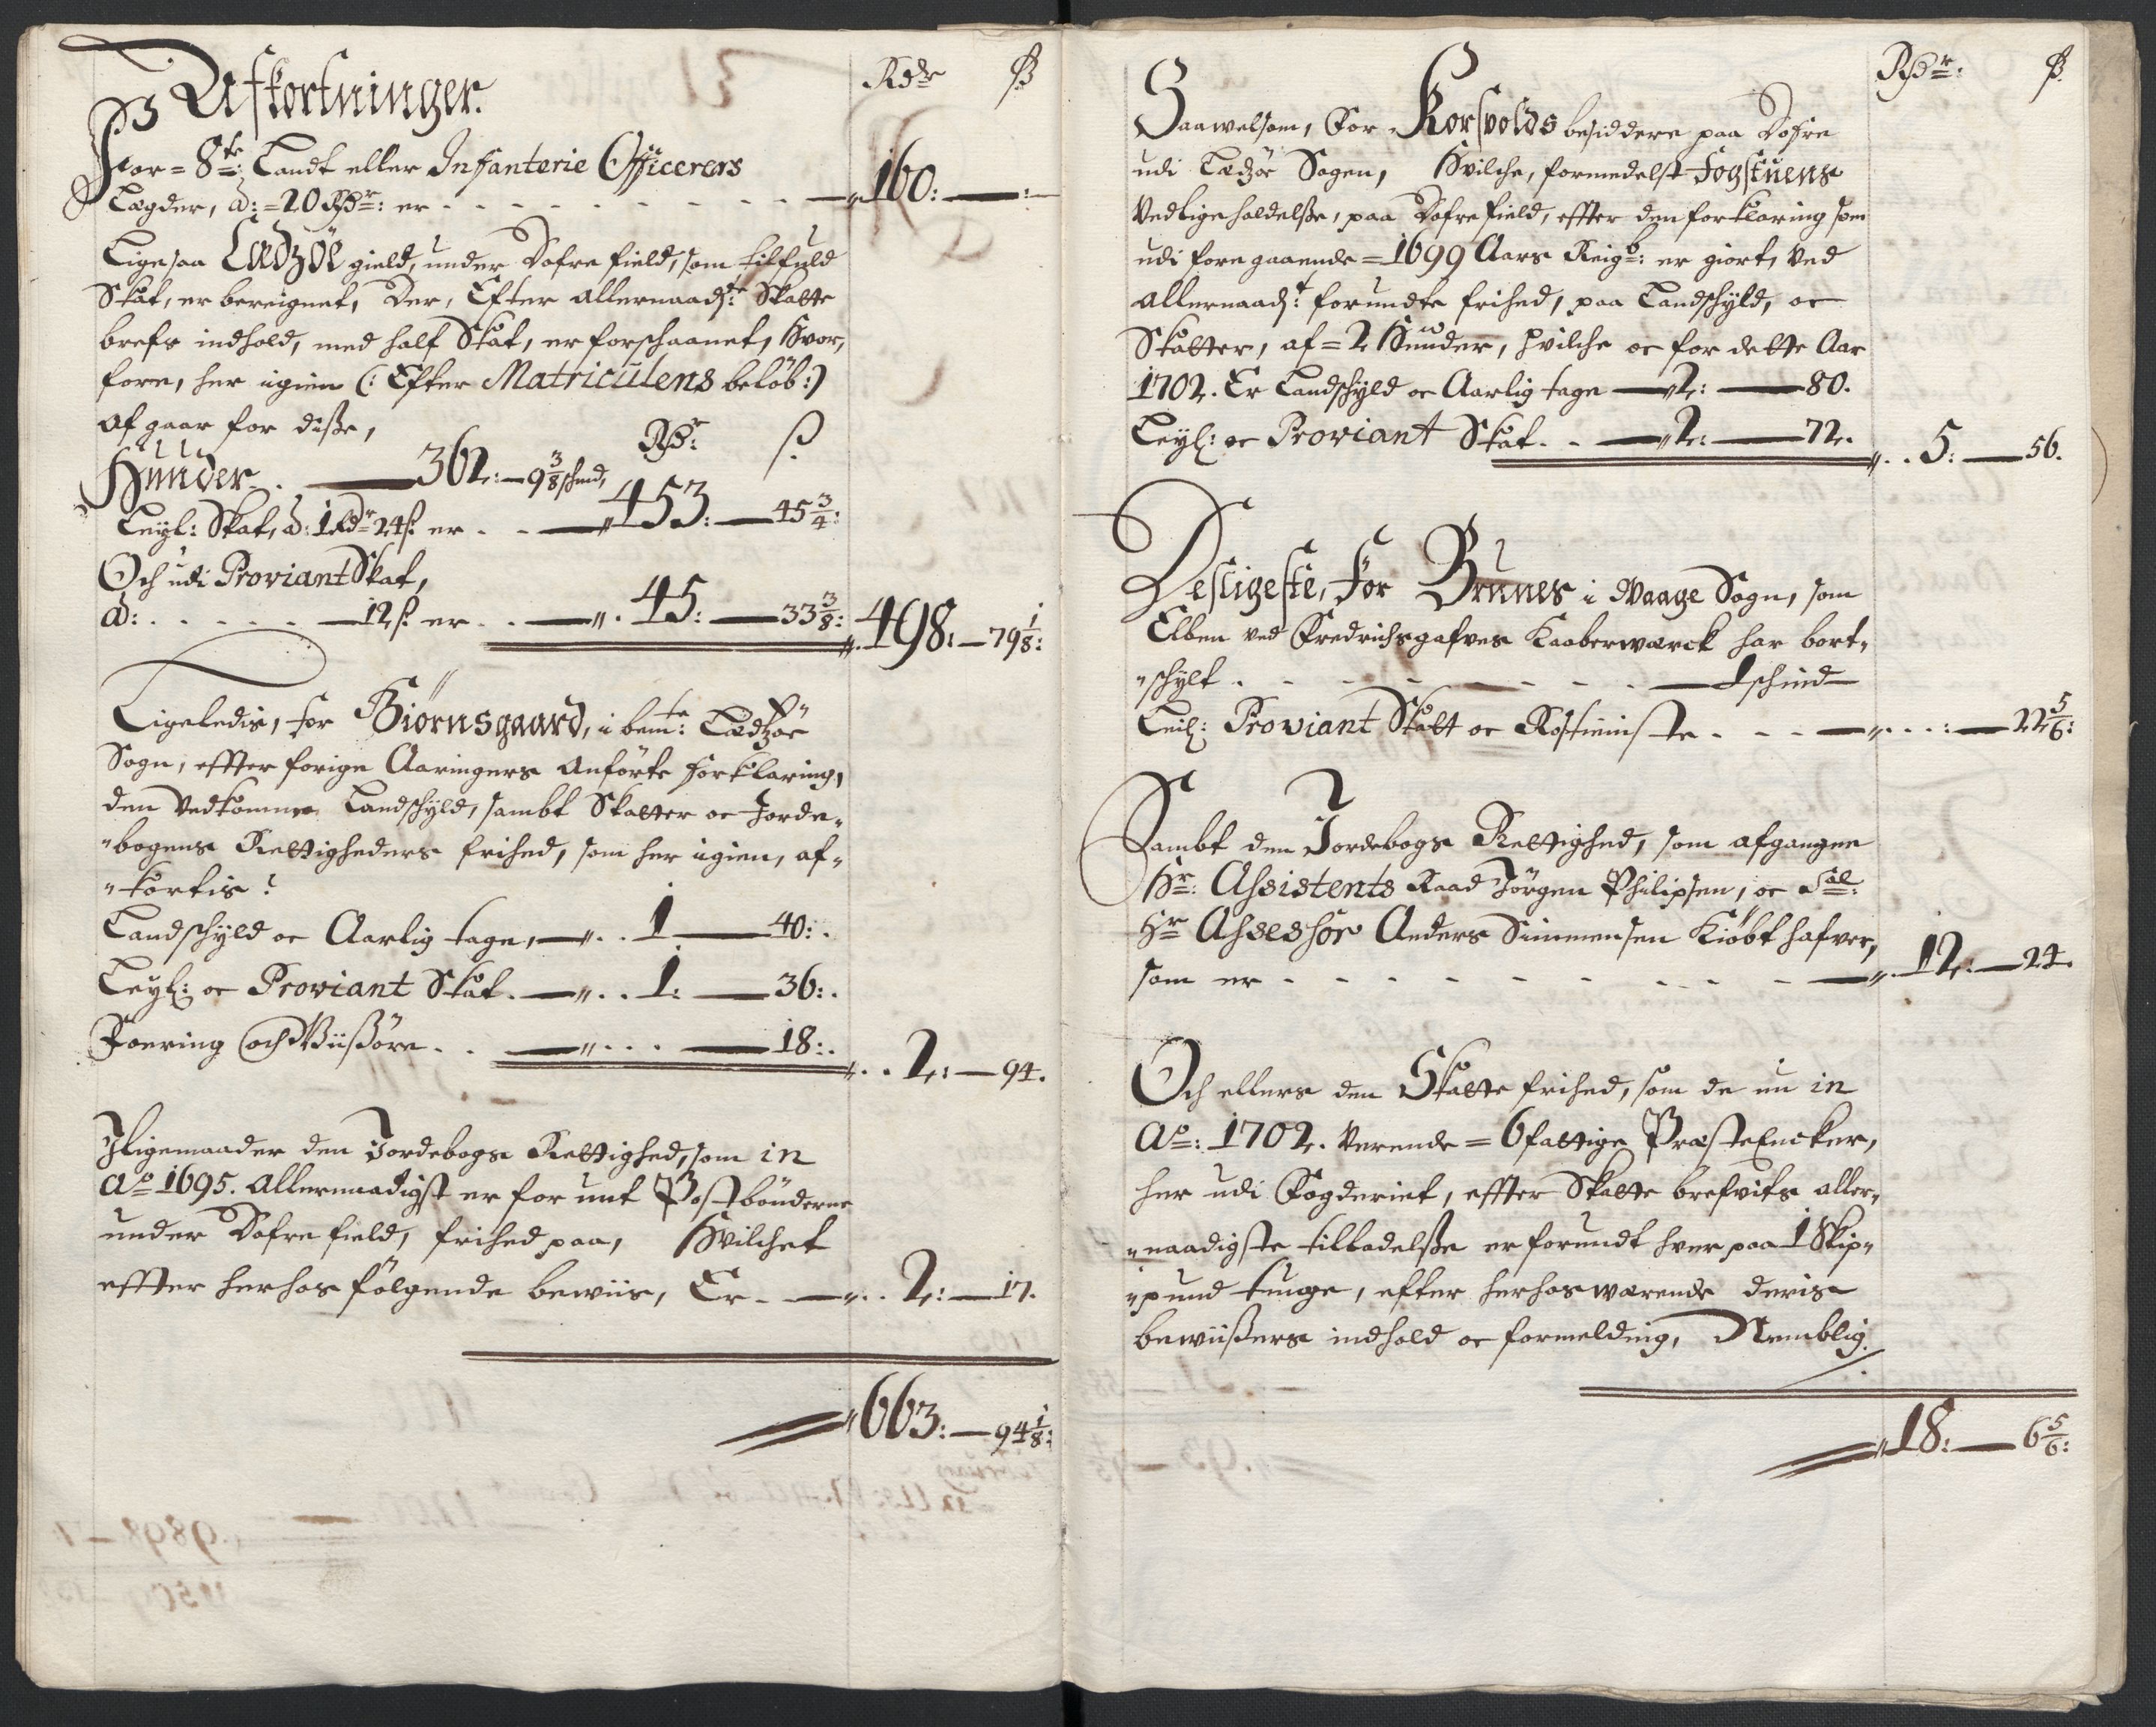 Rdr ß
Afkortninger.
For = 8te: Landt eller Infanterie Officerers
Lægder, a: = 20 Rdr: er - - - - - - - - - - 160: —
Ligesaa Lædzöe gield, under Dofre field, som til fuld
Skat, er bereignet, Der, Efter allernaadste: Skatte
brefs indhold, med half Skat, er forschaanet, Hvor,
fore, her igien (: Efter Matriculens beløb:)
af gaar for disse,
Rdr: ß
Hunder - . — 362: — 9 3/8 schind,
Leyl: Skat, a: 1 Rdr 24 ß er . - — 453: — 45 3/4:
Och udi Proviant Skat,
a: . . . . . — 12 ß er . . — 45: — 33 3/8: 498: — 79 1/8:
Ligeledis, for Biörnsgaard, i bemte: Lædzöe
Sogn, effter forige Aaringers Anförte forklaring,
den Vedkomme Landschyld, sambt Skatter oc Jorde-
bogens Rettigheders frihed, som her igien, af-
kortis:
Landschyld oc Aarlig tage, — . . 1 — 40: .
Leyl: oc Proviant Skat. — . . 1: — 36: .
Foering och Wiissöre . . — . . . — 18: . . . 2: — 94.
Iligemaader den Jordebogs Rettighed, som in
Ao 1695. allernaadigst er for unt Postbönderne
under Dofre field, frihed paa, Hvilchet
effter herhos følgende beviis, Er - — . . 2: — 17.
663: — 94 1/8:
Rdr: ß
Saawelsom, For Korsvolds besiddere paa Dofre
udi Lædzöe Sogen, Hvilche, formedelst Fogstuens
Vedligeholdelsse, paa Dofre field, effter den forklaring som
udi foregaaende = 1699 Aars Reigs: er giort, Ved
allernaadt: forundte frihed, paa Landschyld, oc
Skatter, af = 2 Hunder, hvilche oc for dette Aar
1702. Er Landschyld oc Aarlig tage — 2: — 80.
Leyl: oc Proviant Skat. - — 2: — 72. . . 5: — 56.
Desligeste, for Brunes i Waage Sogn, som
Elben ved Fredrichsgafves Kaaberwærck har bort-
schylt . - - - - - - — 1 schind —
Leil: Proviant Skatt oc Rostieniste . - - — . . . : — 22 5/6:
Sambt den Jordebogs Rettighed, som afgangne
Hr: Assistents Raad Jörgen Philipsen, oc Sal:
Hr Assessor Anders Simmensen Kiöbt hafver,
som er - - - - - - - - - — . 12: — 24.
Och ellers den Skatte frihed, som de nu in
Ao: 1702. Verende = 6 fattige Præste Encker,
her udi Fogderiet, effter Skatte brefvits aller-
naadigste tilladelsse er forundt hver paa 1 Skip-
pund tunge, efter herhos wærende deris
beviissers indhold oc formelding, Nemblig.
18: — 6 5/6: